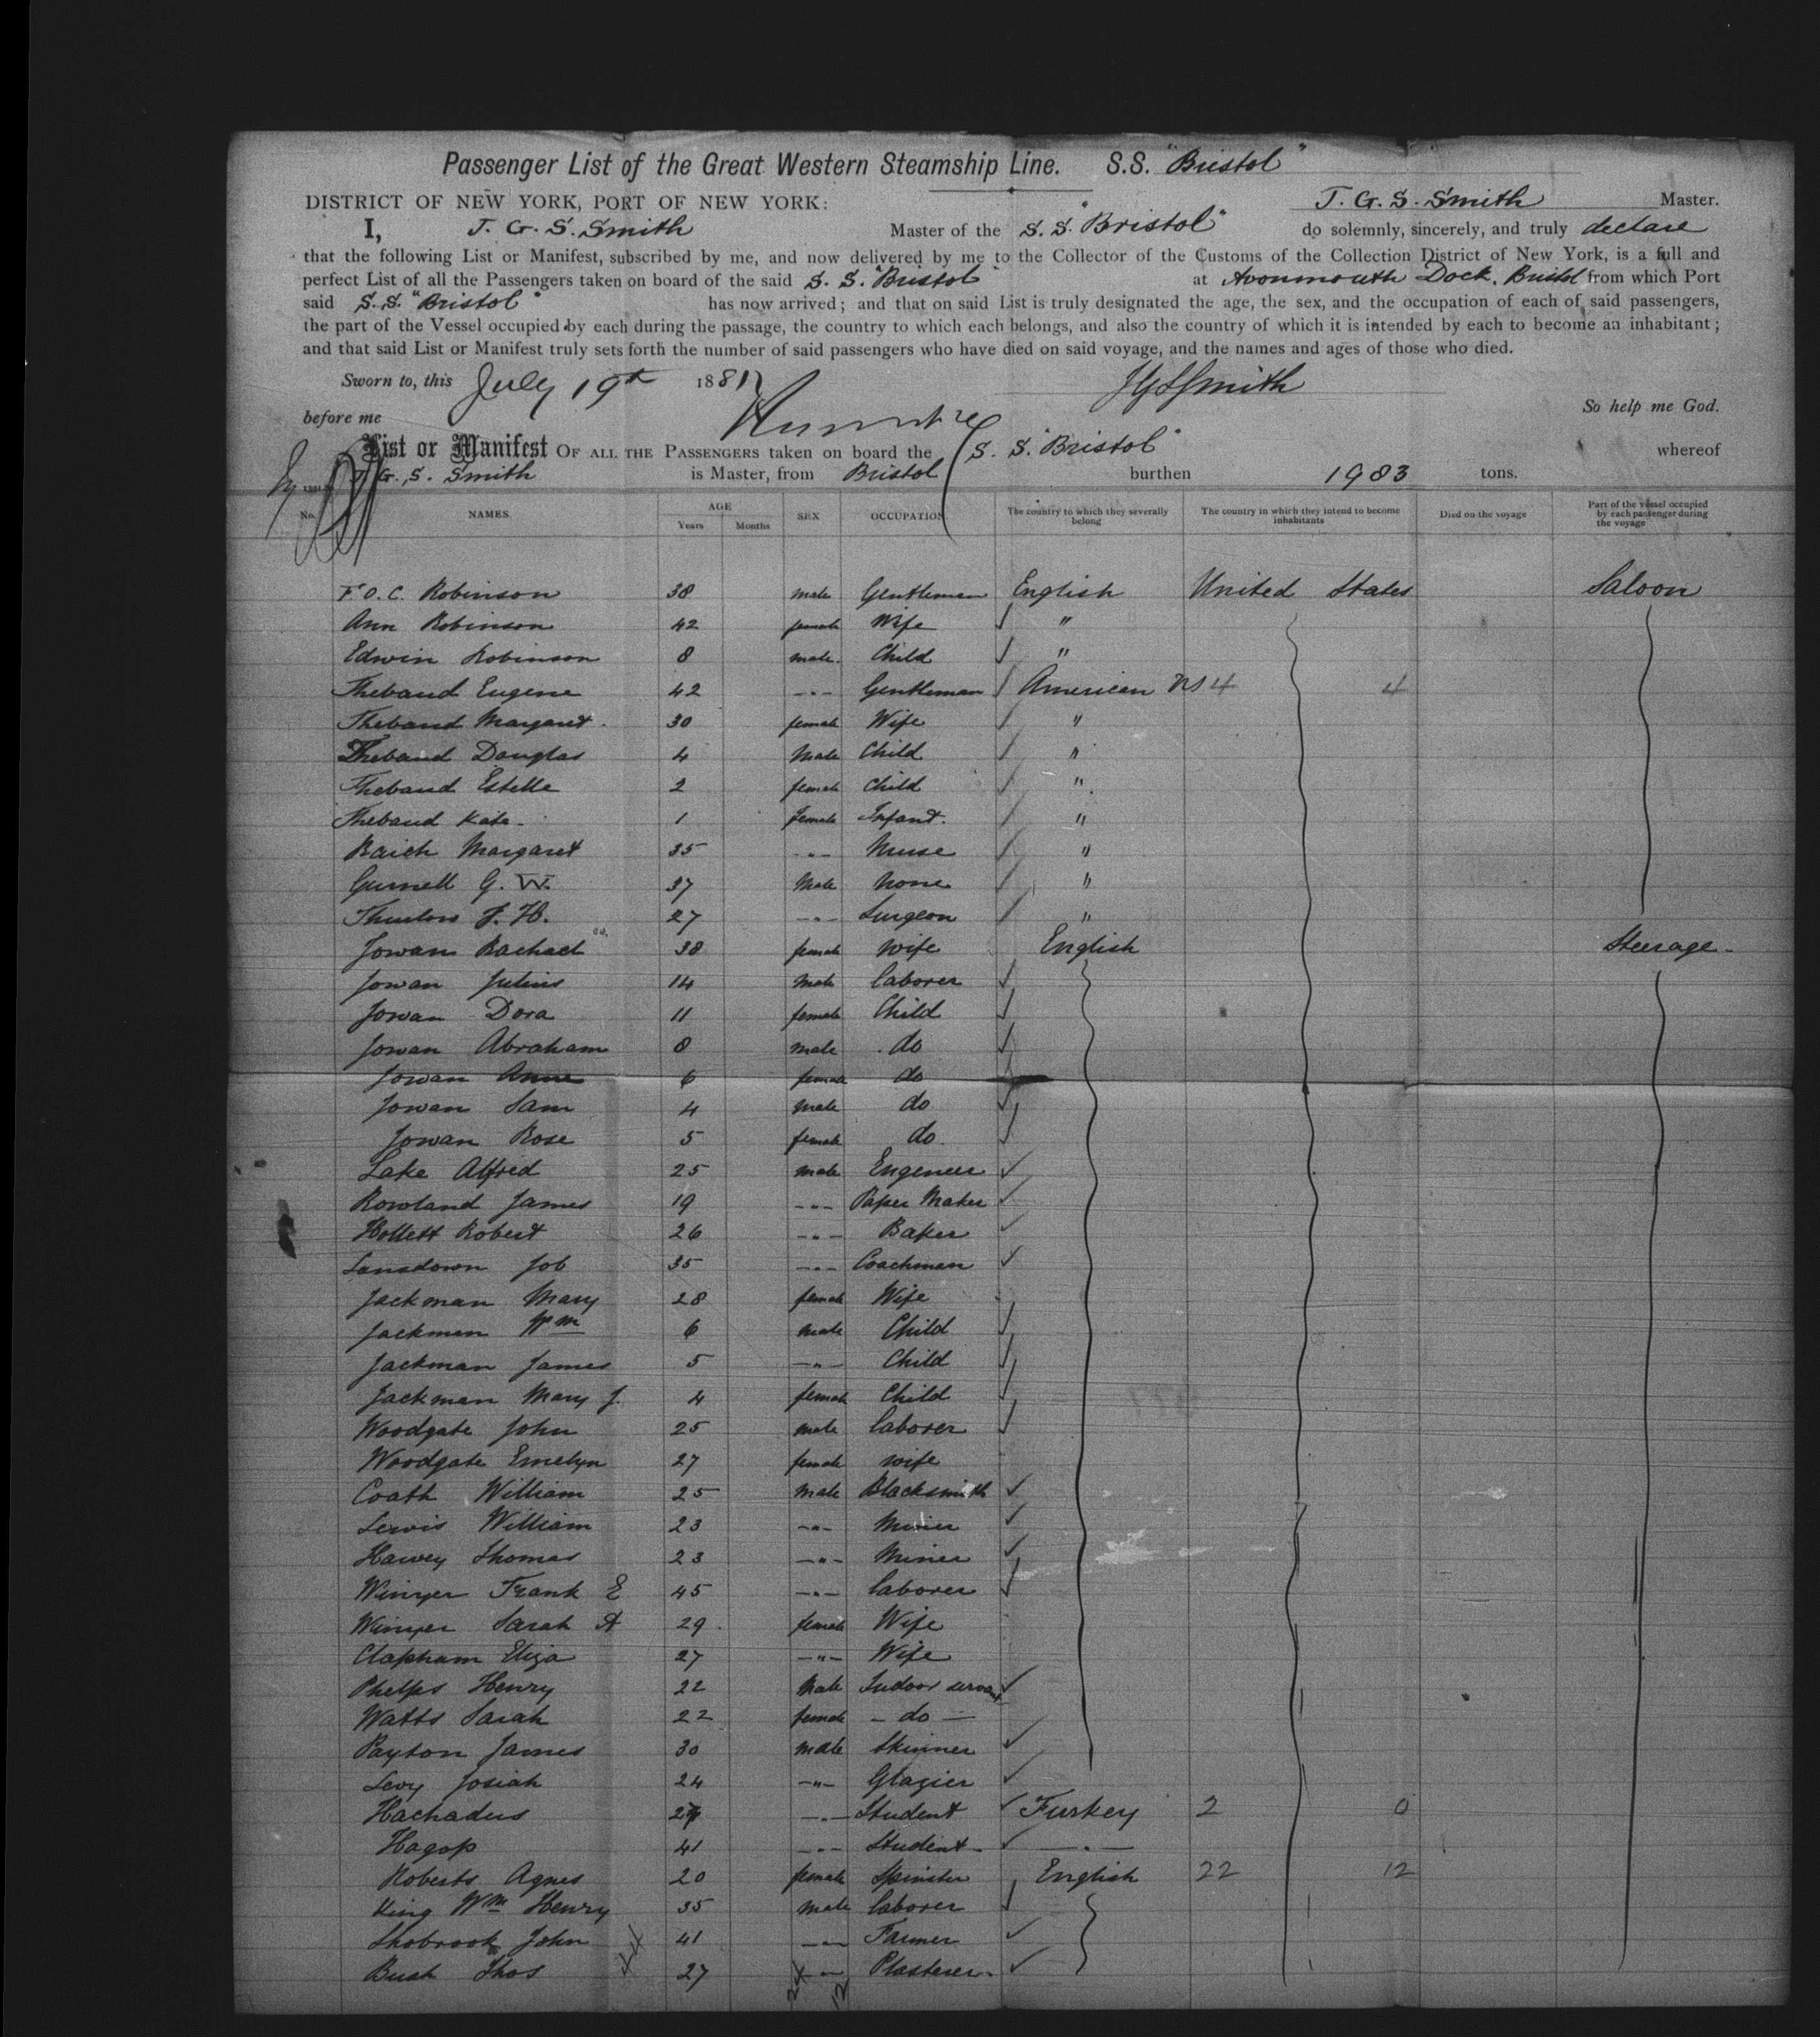 Passenger List of the Great Western Steamship Line. S.S. "Bristol"
DISTRICT OF NEW YORK, PORT OF NEW YORK: J. G. S. Smith Master.
I, J. G. S. Smith Master of the S.S. "Bristol" do solemnly, sincerely, and truly declare
that the following List or Manifest, subscribed by me, and now delivered by me to the Collector of the Customs of the Collection District of New York, is a full and
perfect List of all the Passengers taken on board of the said S. S. "Bristol" at Avonmouth Dock. Bristol from which Port
said S.S. "Bristol" has now arrived; and that on said List is truly designated the age, the sex, and the occupation of each of said passengers,
the part of the Vessel occupied by each during the passage, the country to which each belongs, and also the country of which it is intended by each to become an inhabitant;
and that said List or Manifest truly sets forth the number of said passengers who have died on said voyage, and the names and ages of those who died.
Sworn to, this July 19th 1881 JGSSmith
before me So help me God.
List or Manifest OF ALL THE PASSENGERS taken on board the S. S. "Bristol" whereof
J. G. S. Smith is Master, from Bristol burthen 1983 tons.
No. NAMES. AGE Years Months SEX OCCUPATION The country to which they severally belong The country in which they intend to become inhabitants Died on the voyage Part of the vessel occupied by each passenger during the voyage
F. O. C. Robinson 38 male Gentleman English United States Saloon
Ann Robinson 42 female Wife "
Edwin Robinson 8 male. Child "
Thebaud Eugene 42 -"- Gentleman American 4 4
Thebaud Margaret 30 female Wife "
Thebaud Douglas 4 Male Child "
Thebaud Estelle 2 female Child "
Thebaud Kate 1 Female Infant. "
Margaret 35 -"- Nurse "
Gurnell G. W. 37 Male None "
J. H. 27 -"- Surgeon "
Jowan Rachael 38 female Wife English Steerage
Jowan Julius 14 Male laborer
Jowan Dora 11 female Child
Jowan Abraham 8 male do
Jowan Anne 6 female do
Jowan Sam 4 male do
Jowan Rose 5 female do
Lake Alfred 25 male Engeneer
Rowland James 19 -"- Paper Maker
Hollett Robert 26 -"- Baker
Lansdown Job 35 -"- Coachman
Jackman Mary 28 female Wife
Jackman Wm 6 male Child
Jackman James 5 -"- Child
Jackman Mary J. 4 female Child
Woodgate John 25 male laborer
Woodgate Emelyn 27 female wife
Coath William 25 male Blacksmith
Lewis William 23 -"- Miner
Thomas 23 -"- Miner
Winyer Frank E 45 -"- laborer
Winyer Sarah A 29 female Wife
Clapham Eliza 27 -"- Wife
Phelps Henry 22 Male Indoor servant
Watts Sarah 22 female - do -
Payton James 30 male Skinner
Levy Josiah 24 -"- Glazier
Hachadus -"- Student Turkey 2 0
Hagop 41 -"- Student -"-
Roberts Agnes 20 female Spinster English 22 12
King Wm Henry 35 male laborer
Shobrook John 41 -"- Farmer
Bush Thos 27 -"- Plasterer